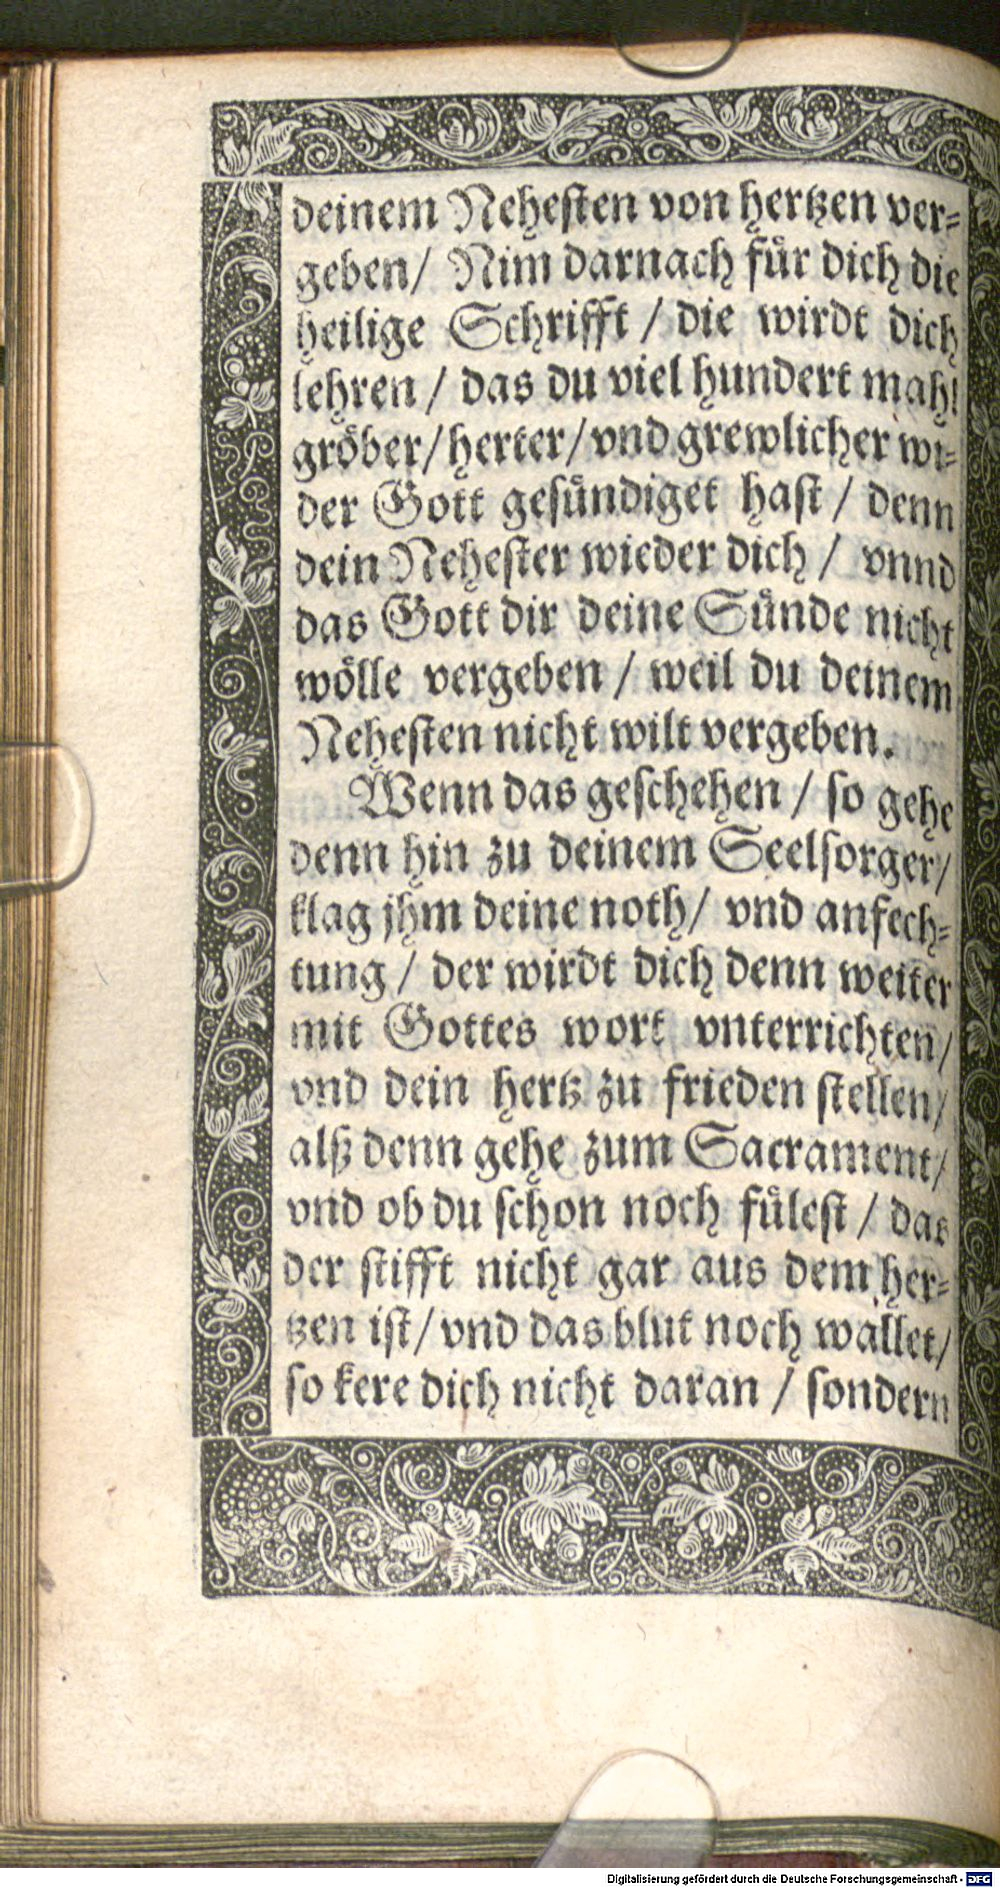 deinem Nehesten von hertzen ver-
geben/ Nim darnach fuͤr dich die
heilige Schrifft / die wirdt dich
lehren / das du viel hundert mahl
groͤber/ herter/ vnd grewlicher wi-
der Gott gesuͤndiget hast / denn
dein Nehester wieder dich / vnnd
das Gott dir deine Suͤnde nicht
woͤlle vergeben / weil du deinem
Nehesten nicht wilt vergeben.
Wenn das geschehen / so gehe
denn hin zu deinem Seelsorger/
klag jhm deine noth/ vnd anfech-
tung / der wirdt dich denn weiter
mit Gottes wort vnterrichten/
vnd dein hertz zu frieden stellen/
alß denn gehe zum Sacrament/
vnd ob du schon noch fuͤlest / das
der stifft nicht gar aus dem her-
tzen ist/ vnd das blut noch wallet/
so kere dich nicht daran / sondern
Digitalisierung gefördert durch die Deutsche Forschungsgemeinschaft - DFG